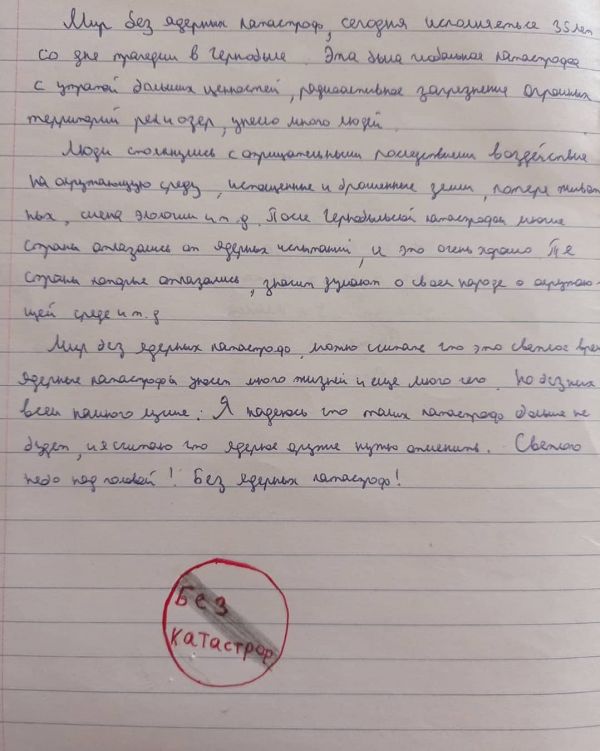 Мир без ядерных катастроф, сегодня исполняеться 35 лет
со дня трагедии в Чернобыле. Эта была глобальная катастрофа
с утратой больших ценностей, радиоактивное загрязнение огромных
территорий рек и озер, унесло много людей.
Люди столкнулись с отрицательными последствиями воздействие
на окружающую среду, истощенные и брошенные земли, потеря живот
ных, смена экологии и т.д. После Чернобыльской катастрофы многие
страны отказались от ядерных испытаний, и это очень хорошо Те
страны которые отказались, значит думают о своем народе о окружаю-
щей среде и т.д
Мир без ядерных катастроф, можно считать что это светлое врем
Ядерные катастрофы унесят много жизней и еще много чего. Но без них
всем намного лучше. Я надеюсь что таких катастроф больше не
будет, и я считаю что ядерное оружие нужно отменить. Светлого
небо над головой! Без ядерных катастроф!
Без
катастроф